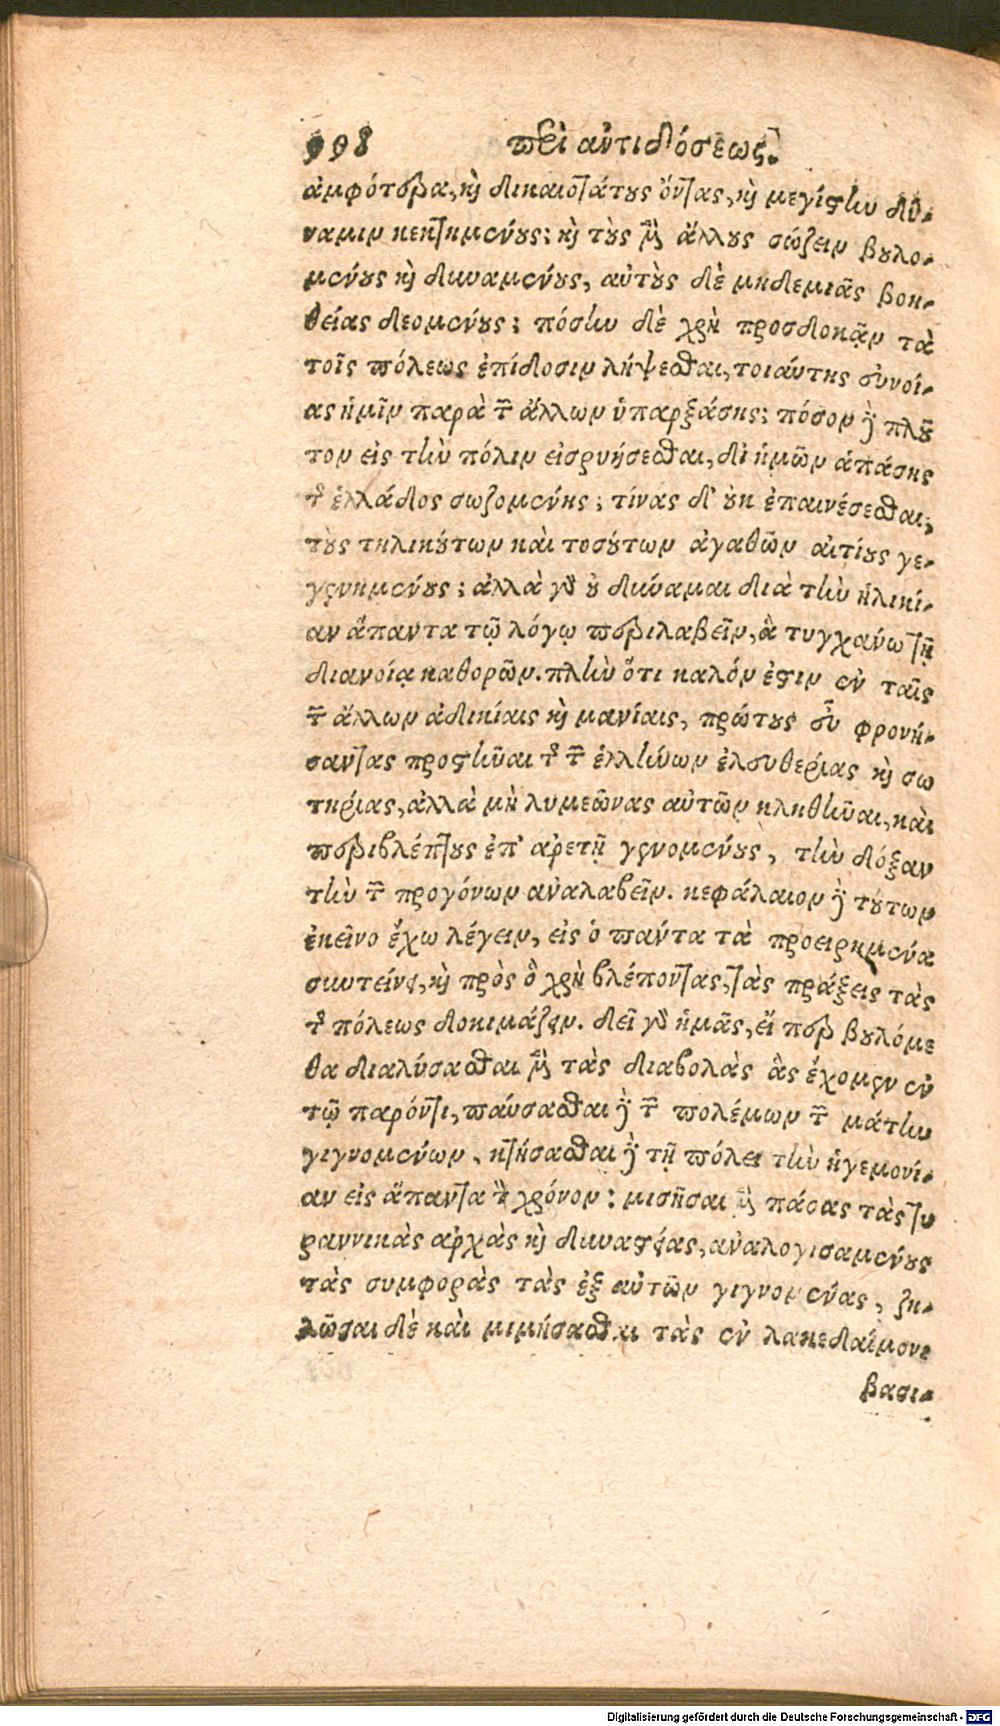 998 περὶ ἀντιδόσεως.
ἀμφότερα, καὶ δικαιοτάτους ὄντας, καὶ μεγίστην δύ-
ναμιν κεκτημένους; καὶ τοὺς μὲν ἄλλους σώζειν βουλο-
μένους καὶ δυναμένους, αὐτοὺς δὲ μηδεμιᾶς βοη-
θείας δεομένους; πόσην δὲ χρὴ προσδοκᾷν τὰ
τοῖς πόλεως ἐπίδοσιν λήψεσθαι, τοιαύτης συνοί-
ας ἡμῖν παρὰ τῶν ἄλλων ὑπαρξάσης; πόσον δὲ πλοῦ
τον εἰς τὴν πόλιν εἰσρυήσεσθαι, δι ἡμῶν ἁπάσης
τῆς ἑλλάδος σωζομένης; τίνας δ' οὐκ ἐπαινέσεσθαι,
τοὺς τηλικούτων καὶ τοσούτων ἀγαθῶν αἰτίους γε-
γενημένους; ἀλλὰ γὰρ οὐ δύναμαι διὰ τὴν ἡλικί-
αν ἅπαντα τῷ λόγῳ περιλαβεῖν, ἃ τυγχάνω τῇ
διανοίᾳ καθορῶν. πλὴν ὅτι καλόν ἐστιν ἐν ταῖς
τῶν ἄλλων ἀδικίαις καὶ μανίαις, πρώτους εὖ φρονή-
σαντας προστῆναι τῆς τῶν ἑλλήνων ἐλευθερίας καὶ σω
τηρίας, ἀλλὰ μὴ λυμεῶνας αὐτῶν κληθῆναι, καὶ
περιβλέπτους ἐπ' ἀρετῇ γενομένους, τὴν δόξαν
τὴν τῶν προγόνων ἀναλαβεῖν. κεφάλαιον δὲ τούτων
ἐκεῖνο ἔχω λέγειν, εἰς ὃ πάντα τὰ προειρημένα
συντείνει, καὶ πρὸς ὃ χρὴ βλέποντας, τὰς πράξεις τὰς
τῆς πόλεως δοκιμάζειν. δεῖ γὰρ ἡμᾶς, εἴ περ βουλόμε
θα διαλύσασθαι μὲν τὰς διαβολὰς ἃς ἔχομεν ἐν
τῷ παρόντι, παύσασθαι δὲ τῶν πολέμων τῶν μάτην
γιγνομένων, κτήσασθαι δὲ τῇ πόλει τὴν ἡγεμονί-
αν εἰς ἅπαντα τὸν χρόνον: μισῆσαι μὲν πάσας τὰς τυ
ραννικὰς ἀρχὰς καὶ δυναστείας, ἀναλογισαμένους
τὰς συμφορὰς τὰς ἐξ αὐτῶν γιγνομένας, ζη-
λῶσαι δὲ καὶ μιμήσασθαι τὰς ἐν λακεδαίμονι
βασι-
Digitalisierung gefördert durch die Deutsche Forschungsgemeinschaft - DFG